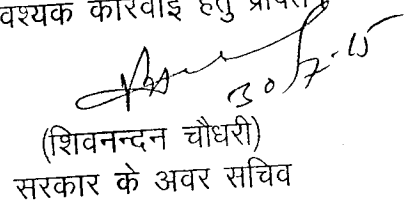 कार्रवाई हेतु
30/7.15
(शिवनन्दन चौधरी)
सरकार के अवर सचिव